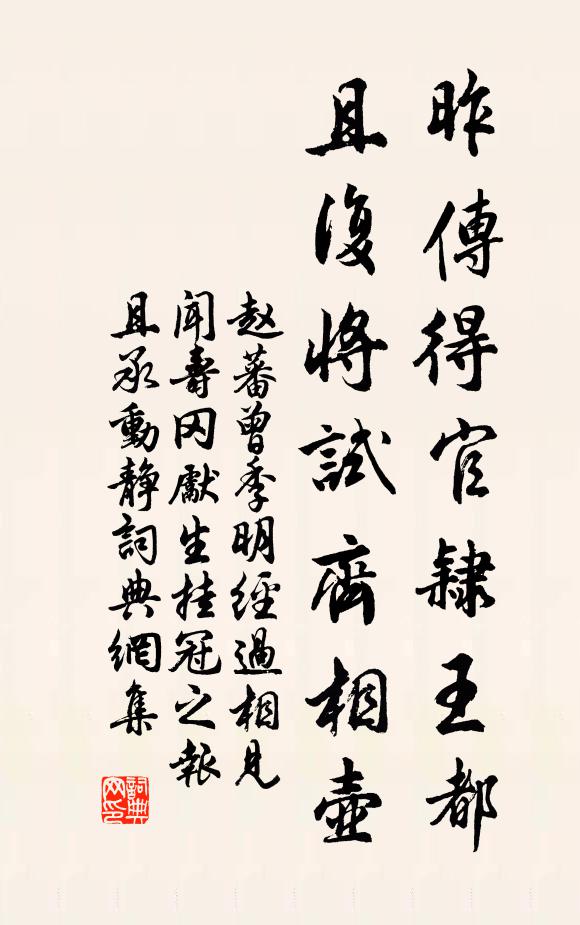 昨傳得官隸王都
且復將試齊相壺
赵蕃曾季明經過相見
聞壽冈獻生挂冠之報
且承動静詞典網集
詞典网印